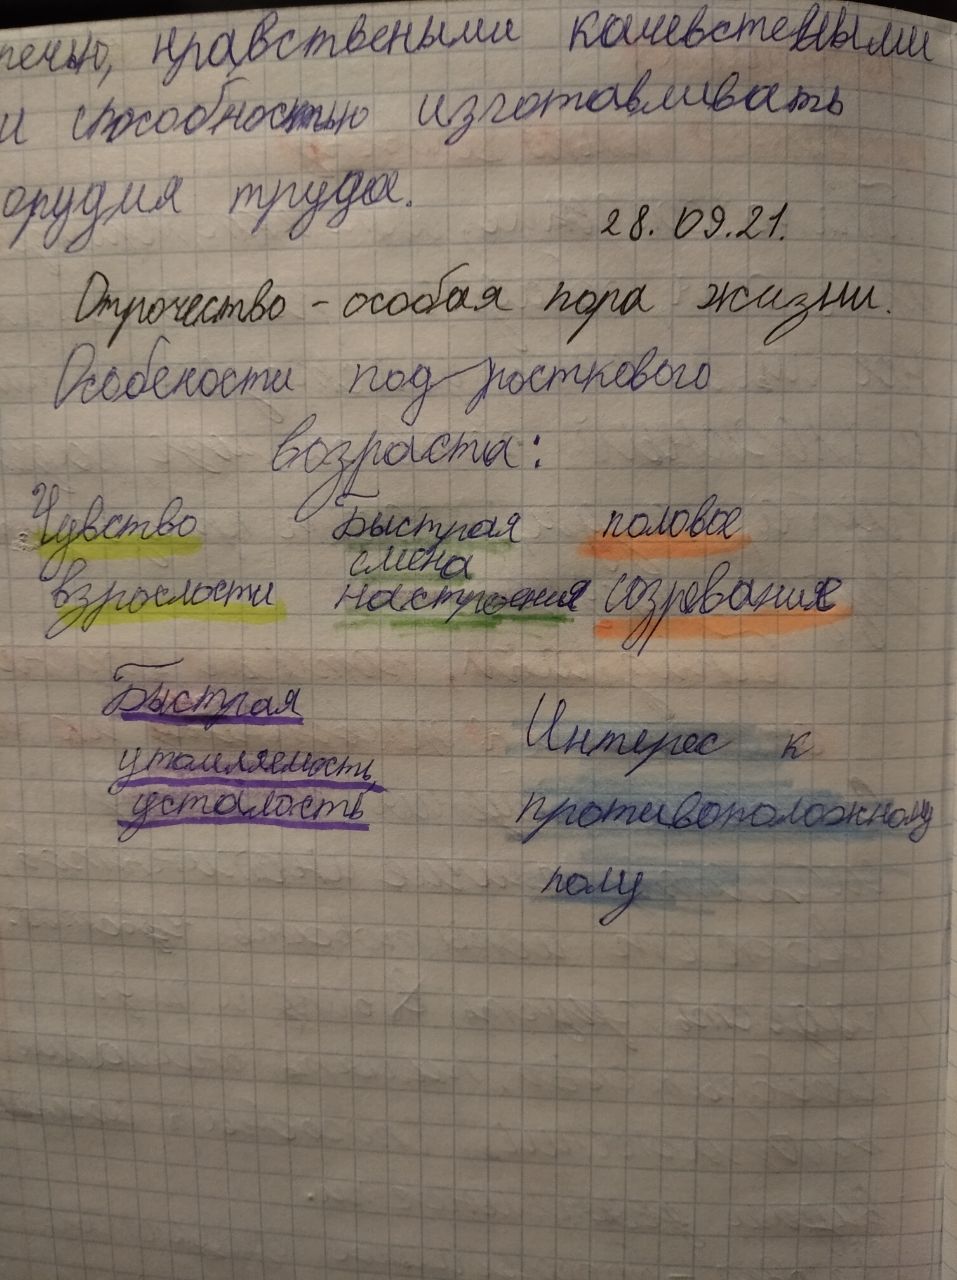 печью, нравствеными качевственными
и способностью изготавливать
орудия труда.
28.09.21.
Отрочество - особая пора жизни.
Особености подросткового
возраста:
Чувство
взрослости
Быстрая
смена
настроения
половое
созревание
Быстрая
утомляемость,
усталость
Интерес к
противоположному
полу